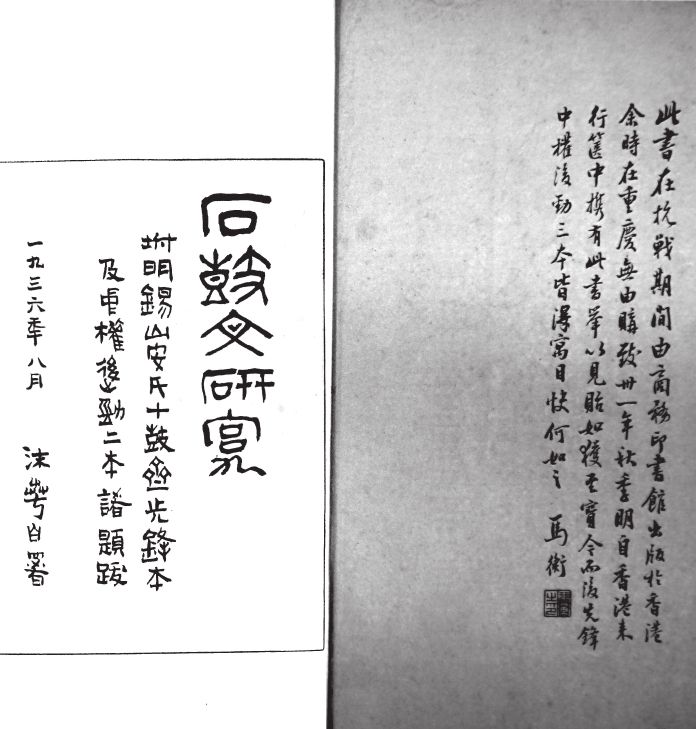 此書在抗戰期間由商務印書館出版於香港
余時在重慶無由購致卅一年秋季明自香港来
行篋中攜有此書舉以見貽如獲至寶今而後先鋒
中權後勁三本皆得寓目快何如之 馬衡
石鼓文研究
坿明錫山安氏十鼓齋先鋒本
及中權後勁二本諸題跋
一九三六年八月 沫若自署